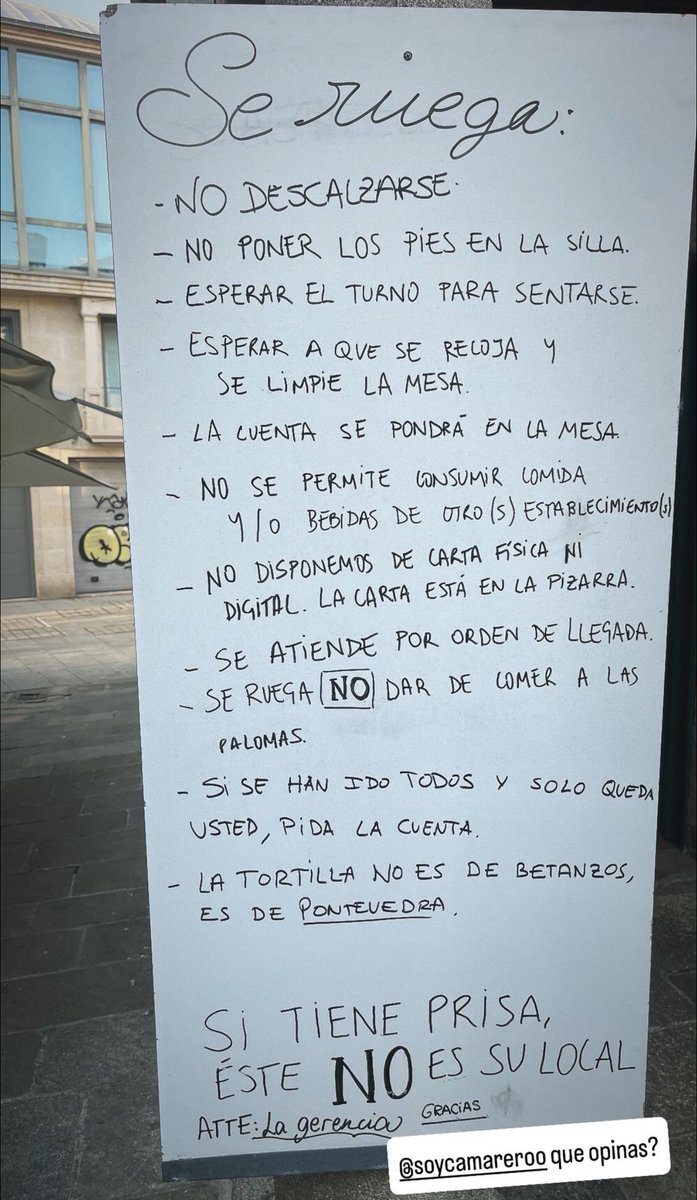 Se ruega:
- NO DESCALZARSE.
- NO PONER LOS PIES EN LA SILLA.
- ESPERAR EL TURNO PARA SENTARSE.
- ESPERAR A QUE SE RECOJA Y
SE LIMPIE LA MESA.
- LA CUENTA SE PONDRÁ EN LA MESA.
- NO SE PERMITE CONSUMIR COMIDA
Y/O BEBIDAS DE OTRO(S) ESTABLECIMIENTO(S)
- NO DISPONEMOS DE CARTA FÍSICA NI
DIGITAL. LA CARTA ESTÁ EN LA PIZARRA.
- SE ATIENDE POR ORDEN DE LLEGADA.
- SE RUEGA NO DAR DE COMER A LAS
PALOMAS.
- SI SE HAN IDO TODOS Y SOLO QUEDA
USTED, PIDA LA CUENTA.
- LA TORTILLA NO ES DE BETANZOS,
ES DE PONTEVEDRA.
SI TIENE PRISA,
ÉSTE NO ES SU LOCAL
ATTE: La gerencia GRACIAS
@soycamareroo que opinas?